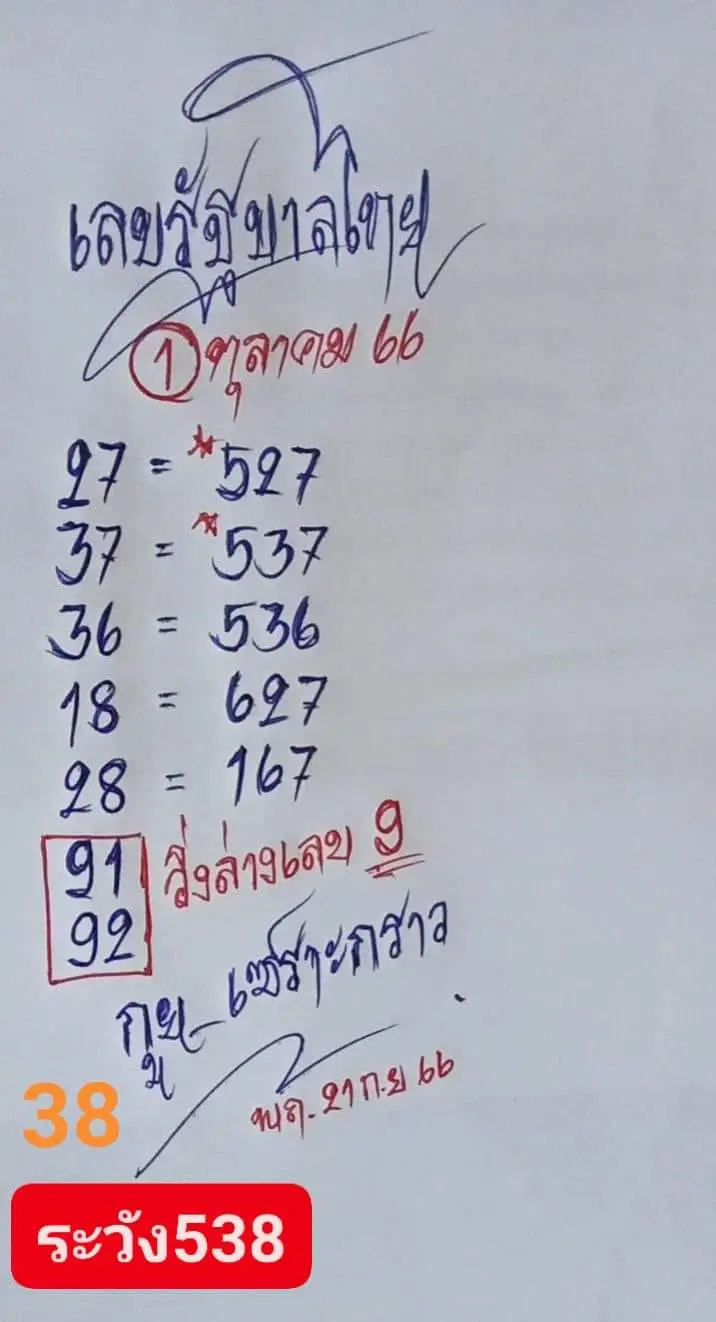 เลขรัฐบาลไทย
1 ตุลาคม 66
27 = *527
37 = *537
36 = 536
18 = 627
28 = 167
91 วิ่งล่างเลข 9
92
พฤ. 21 ก.ย 66
38
ระวัง538